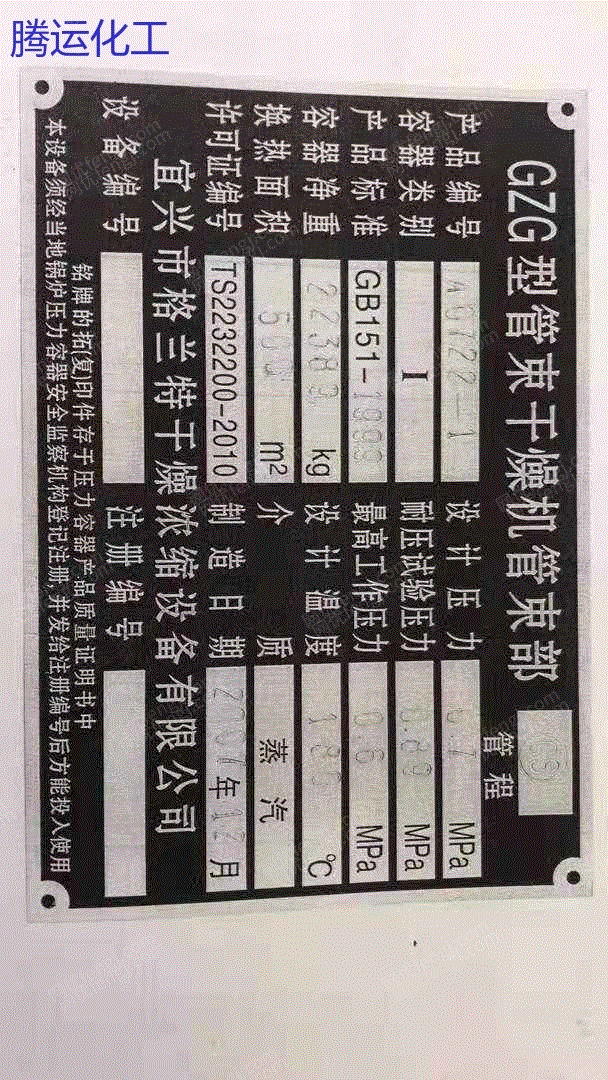 腾运化工
GZG型管束干燥机管束部
管程
产品编号 A0722-1 设计压力 0.7 MPa
容器类别 I 耐压试验压力 0.89 MPa
产品标准 GB151-1999 最高工作压力 0.6 MPa
容器净重 kg 设计温度 ℃
换热面积 500 m²介质 蒸汽
许可证编号 TS2232200-2010 制造日期 2007年12月
宜兴市格兰特干燥浓缩设备有限公司
设备编号 注册编号
铭牌的拓(复)印件存于压力容器产品质量证明书中
本设备须经当地锅炉压力容器安全监察机构登记注册,并发给注册编号后方能投入使用